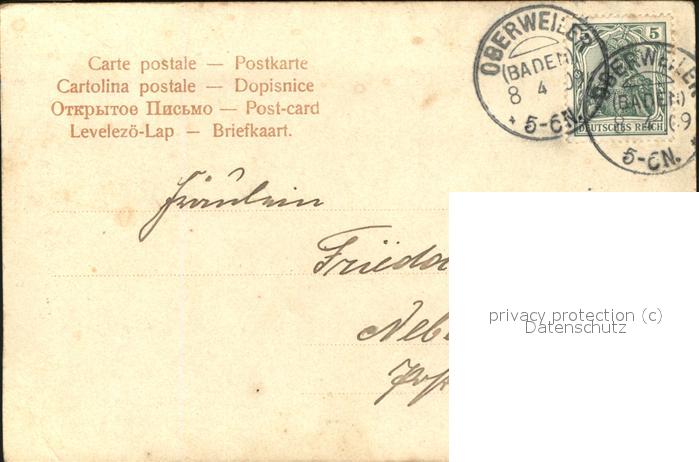 Carte postale — Postkarte
Cartolina postale — Dopisnice
Открытое Письмо — Post-card
Levelező-Lap — Briefkaart.
OBERWEILER
(BADEN)
8 4
* 5-6N.
5
DEUTSCHES REICH
OBERWEILER
(BADEN)
8 09
5-6N. *
Fräulein
Frieda
Neb
privacy protection (c)
Datenschutz